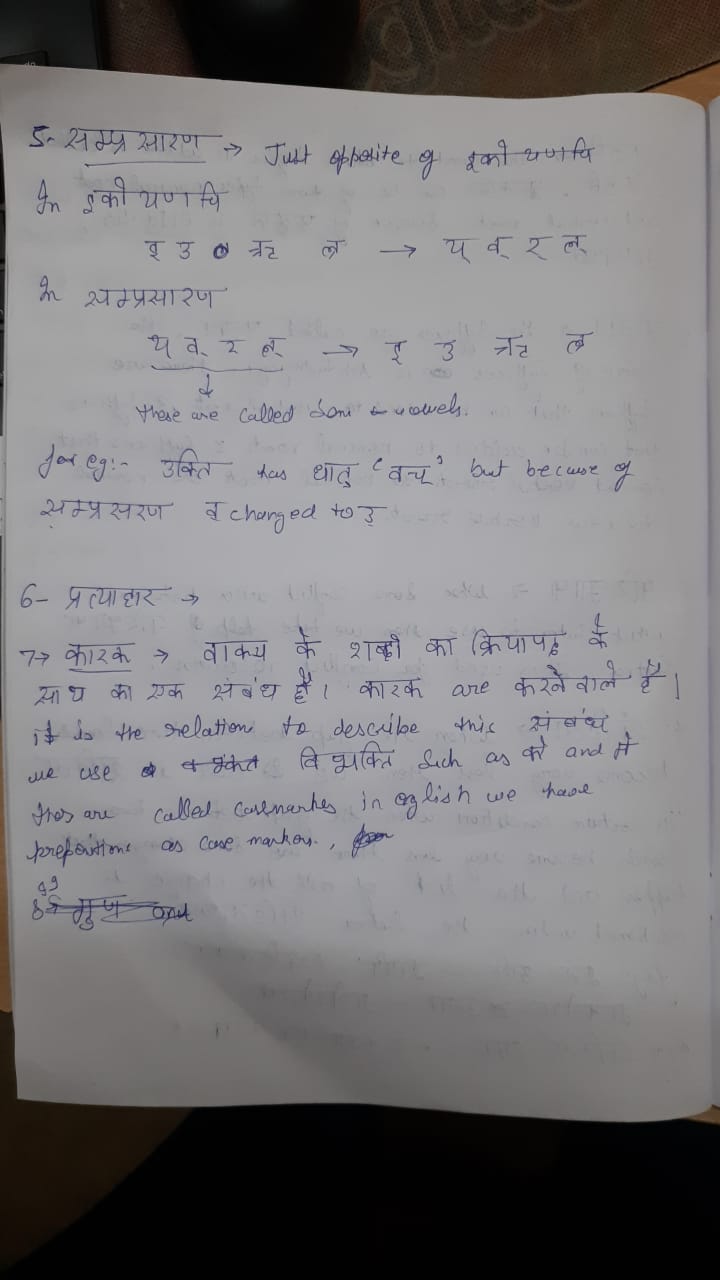 5- सम्प्रसारण → Just opposite of इको यणचि
In इको यणचि
इ उ ऋ लृ → य् व् र् ल्
In सम्प्रसारण
य व् र ल् → इ उ ऋ लृ
↓
these are called Semi vowels.
for eg:- उक्ति has धातु 'वच्' but because of
सम्प्रसरण व changed to उ
6- प्रत्याहार →
7→ कारक → वाक्य के शब्दों का क्रियापद के
साथ का एक संबंध है। कारक are करने वाले है।
it is the relation to describe this संबंध
we use विभक्ति Such as को and ने
thes are called casemarkes in english we have
prepositions as case markers.,
8→ गुण and